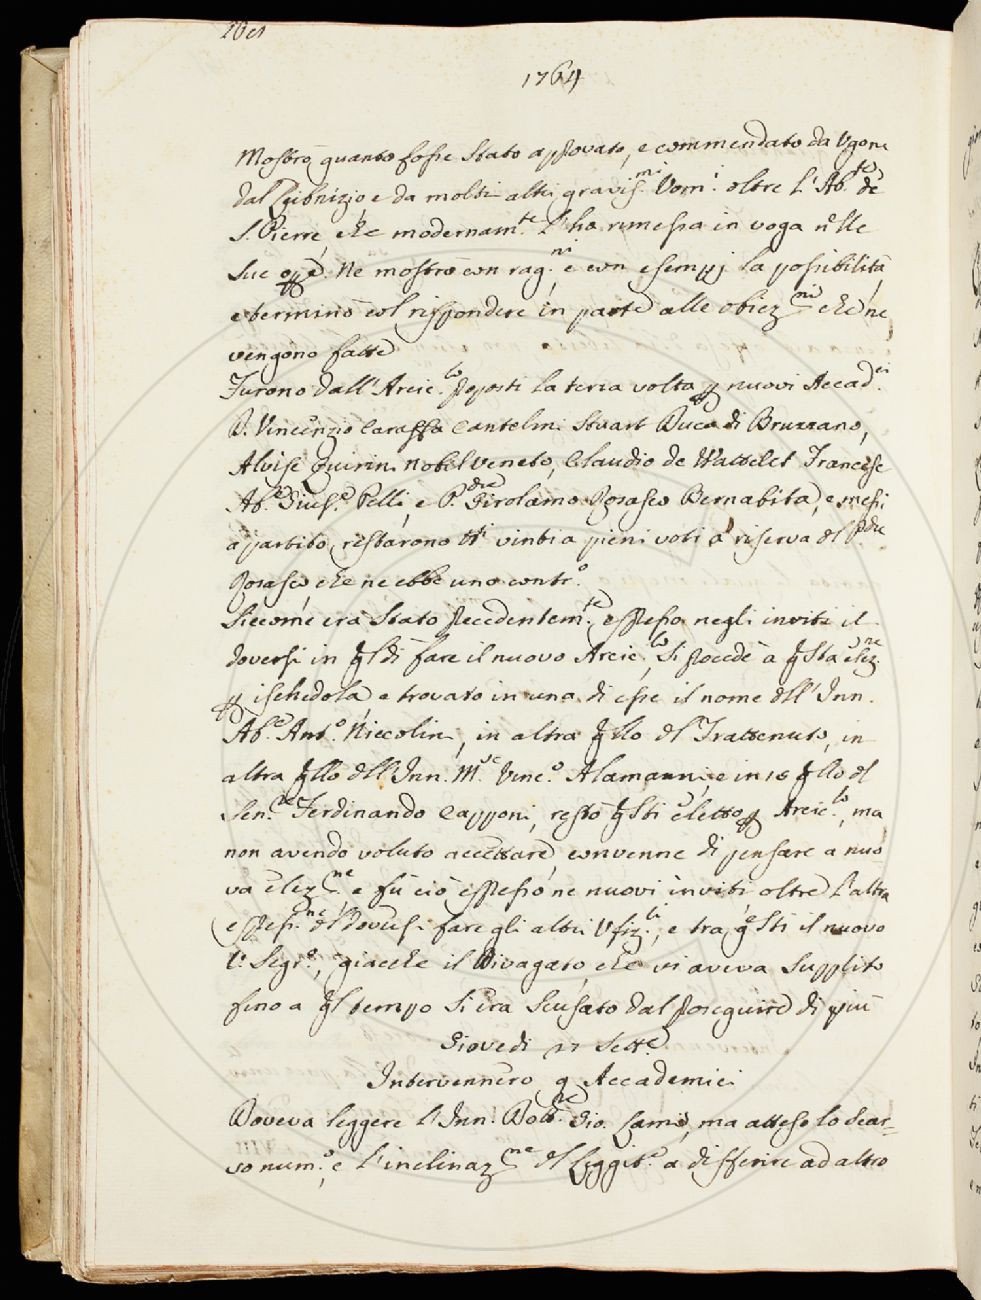 1764
Mostrò quanto fosse stato approvato, e commendato da Ugone
dal Leibnizio, e da molti altri gravis.mi Vom.i oltre l'Ab.te de
S. Pierre, che modernam.te l'ha rimessa in voga nelle
sue opp.e Ne mostrò con rag.ni, e con esempj la possibilità,
e terminò col rispondere in parte alle obiez.ni che ne
vengono fatte
Furono dall'Arcic.lo proposti la terza volta p nuovi Accad.ci
D. Vincenzio Caraffa Cantelmi Stuart Duca di Bruzzano,
Alvise Quirini Nobel Veneto, Claudio de Wattelet Francese
Ab.e Gius.e Pelli, e P.dre Girolamo Rosasco Bernabita, e messi
a partito restarono tti vinti a pieni voti a riserva del P.dre
Rosasco, che ne ebbe uno contr.o
Siccome era stato precedentem.te espresso negli inviti il
doversi in ql dì fare il nuovo Arcic.lo, si procedè a qsta elez.ne
p ischedola, e trovato in una di esse il nome dell'Inn.
Ab.e Ant.o Niccolini, in altra qllo del Trattenuto, in
altra qllo dell'Inn. M.se Vinc.o Alamanni, e in 18 qllo del
Sen.re Ferdinando Capponi, restò qsti eletto p Arcic.lo, ma
non avendo voluto accettare convenne di pensare a nuo-
va elez.ne, e fù ciò espresso ne nuovi inviti oltre l'altra
espres.ne del doversi fare gli altri Ufiz.li, e tra qsti il nuovo
V. Segr.o, giacchè il Divagato, che vi aveva supplito
fino a ql tempo si era scusato dal proseguire di più
Giovedì Sett.e
Intervennero 9 Accademici
Doveva leggere l'Inn. Dott.re Gio. Lami, ma atteso lo scar-
so num.o, e l'inclinaz.ne del Leggit.e a differire ad altro